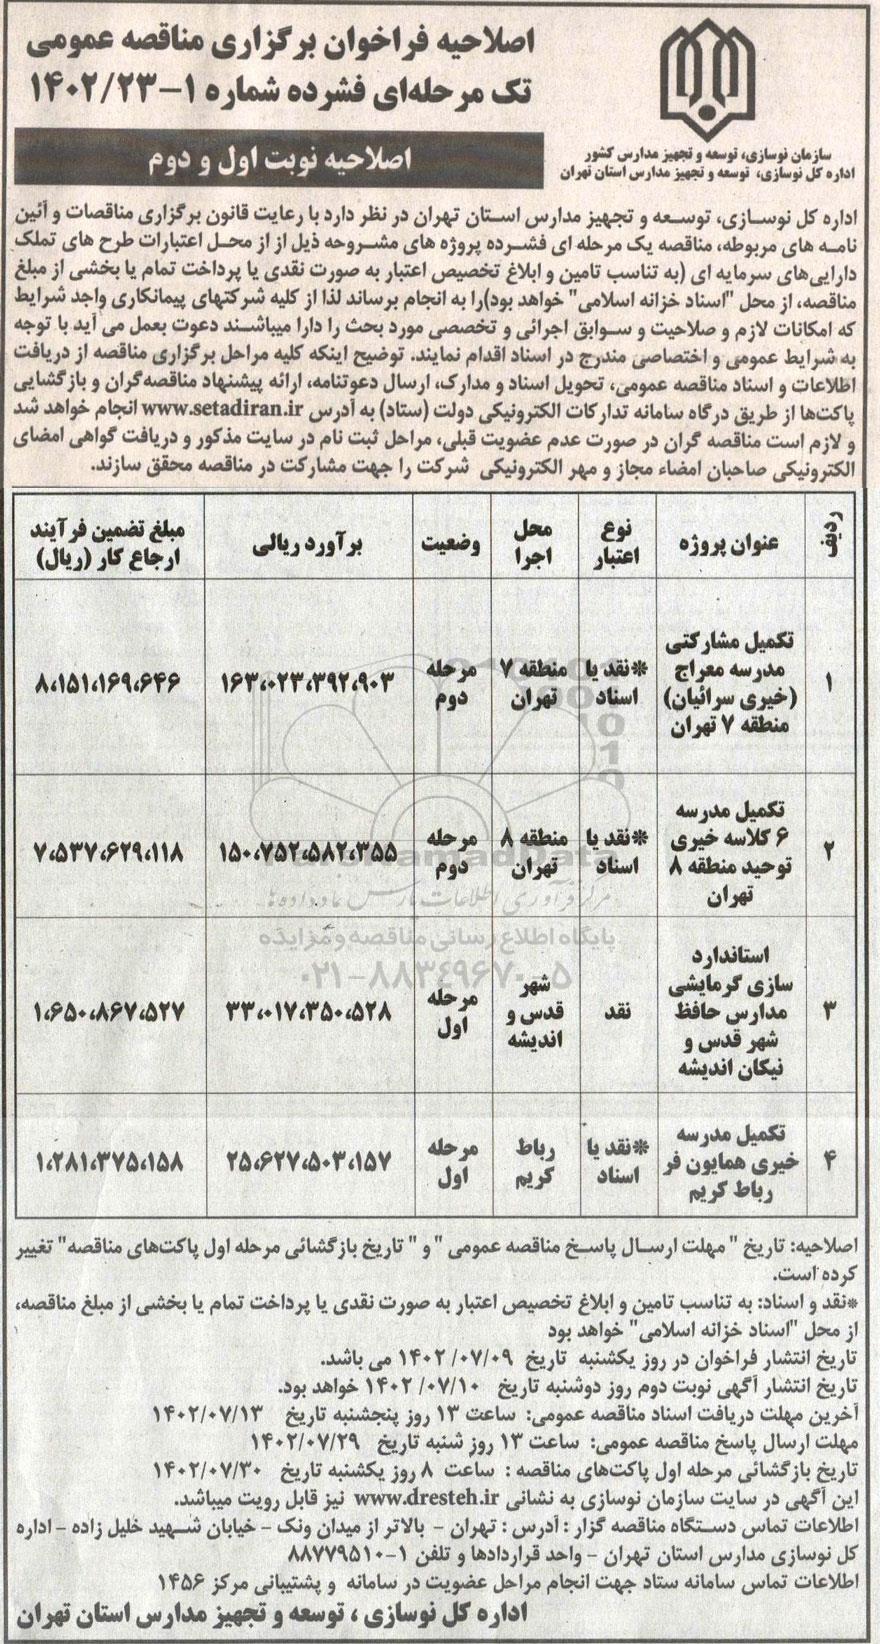 اصلاحیه فراخوان برگزاری مناقصه عمومی
تک مرحله‌ای فشرده شماره ۱-۱۴۰۲/۲۳
سازمان نوسازی، توسعه و تجهیز مدارس کشور
اداره کل نوسازی، توسعه و تجهیز مدارس استان تهران
اصلاحیه نوبت اول و دوم
اداره کل نوسازی، توسعه و تجهیز مدارس استان تهران در نظر دارد با رعایت قانون برگزاری مناقصات و آئین
نامه های مربوطه، مناقصه یک مرحله ای فشرده پروژه های مشروحه ذیل از از محل اعتبارات طرح های تملک
دارایی‌های سرمایه ای (به تناسب تامین و ابلاغ تخصیص اعتبار به صورت نقدی یا پرداخت تمام یا بخشی از مبلغ
مناقصه، از محل "اسناد خزانه اسلامی" خواهد بود)را به انجام برساند لذا از کلیه شرکتهای پیمانکاری واجد شرایط
که امکانات لازم و صلاحیت و سوابق اجرائی و تخصصی مورد بحث را دارا میباشند دعوت بعمل می آید با توجه
به شرایط عمومی و اختصاصی مندرج در اسناد اقدام نمایند. توضیح اینکه کلیه مراحل برگزاری مناقصه از دریافت
اطلاعات و اسناد مناقصه عمومی، تحویل اسناد و مدارک، ارسال دعوتنامه، ارائه پیشنهاد مناقصه‌گران و بازگشایی
پاکت‌ها از طریق درگاه سامانه تدارکات الکترونیکی دولت (ستاد) به آدرس www.setadiran.ir انجام خواهد شد
و لازم است مناقصه گران در صورت عدم عضویت قبلی، مراحل ثبت نام در سایت مذکور و دریافت گواهی امضای
الکترونیکی صاحبان امضاء مجاز و مهر الکترونیکی شرکت را جهت مشارکت در مناقصه محقق سازند.
ردیف | عنوان پروژه | نوع اعتبار | محل اجرا | وضعیت | برآورد ریالی | مبلغ تضمین فرآیند ارجاع کار (ریال)
۱ | تکمیل مشارکتی مدرسه معراج (خیری سرائیان) منطقه ۷ تهران | *نقد یا اسناد | منطقه ۷ تهران | مرحله دوم | ۱۶۳،۰۲۳،۳۹۲،۹۰۳ | ۸،۱۵۱،۱۶۹،۶۴۶
۲ | تکمیل مدرسه ۶ کلاسه خیری توحید منطقه ۸ تهران | *نقد یا اسناد | منطقه ۸ تهران | مرحله دوم | ۱۵۰،۷۵۲،۵۸۲،۳۵۵ | ۷،۵۳۷،۶۲۹،۱۱۸
۳ | استاندارد سازی گرمایشی مدارس حافظ شهر قدس و نیکان اندیشه | نقد | شهر قدس و اندیشه | مرحله اول | ۳۳،۰۱۷،۳۵۰،۵۲۸ | ۱،۶۵۰،۸۶۷،۵۲۷
۴ | تکمیل مدرسه خیری همایون فر رباط کریم | *نقد یا اسناد | رباط کریم | مرحله اول | ۲۵،۶۲۷،۵۰۳،۱۵۷ | ۱،۲۸۱،۳۷۵،۱۵۸
مرکز فرآوری اطلاعات پارس نماد داده‌ها
پایگاه اطلاع رسانی مناقصه و مزایده
۰۲۱-۸۸۳۴۹۶۷۰-۵
اصلاحیه: تاریخ " مهلت ارسال پاسخ مناقصه عمومی " و " تاریخ بازگشائی مرحله اول پاکت‌های مناقصه" تغییر
کرده است.
*نقد و اسناد: به تناسب تامین و ابلاغ تخصیص اعتبار به صورت نقدی یا پرداخت تمام یا بخشی از مبلغ مناقصه،
از محل "اسناد خزانه اسلامی" خواهد بود
تاریخ انتشار فراخوان در روز یکشنبه تاریخ ۱۴۰۲/۰۷/۰۹ می باشد.
تاریخ انتشار آگهی نوبت دوم روز دوشنبه تاریخ ۱۴۰۲/۰۷/۱۰ خواهد بود.
آخرین مهلت دریافت اسناد مناقصه عمومی: ساعت ۱۳ روز پنجشنبه تاریخ ۱۴۰۲/۰۷/۱۳
مهلت ارسال پاسخ مناقصه عمومی: ساعت ۱۳ روز شنبه تاریخ ۱۴۰۲/۰۷/۲۹
تاریخ بازگشائی مرحله اول پاکت‌های مناقصه : ساعت ۸ روز یکشنبه تاریخ ۱۴۰۲/۰۷/۳۰
این آگهی در سایت سازمان نوسازی به نشانی www.dresteh.ir نیز قابل رویت میباشد.
اطلاعات تماس دستگاه مناقصه گزار : آدرس : تهران - بالاتر از میدان ونک - خیابان شهید خلیل زاده - اداره
کل نوسازی مدارس استان تهران - واحد قراردادها و تلفن ۱-۸۸۷۷۹۵۱۰
اطلاعات تماس سامانه ستاد جهت انجام مراحل عضویت در سامانه و پشتیبانی مرکز ۱۴۵۶
اداره کل نوسازی ، توسعه و تجهیز مدارس استان تهران